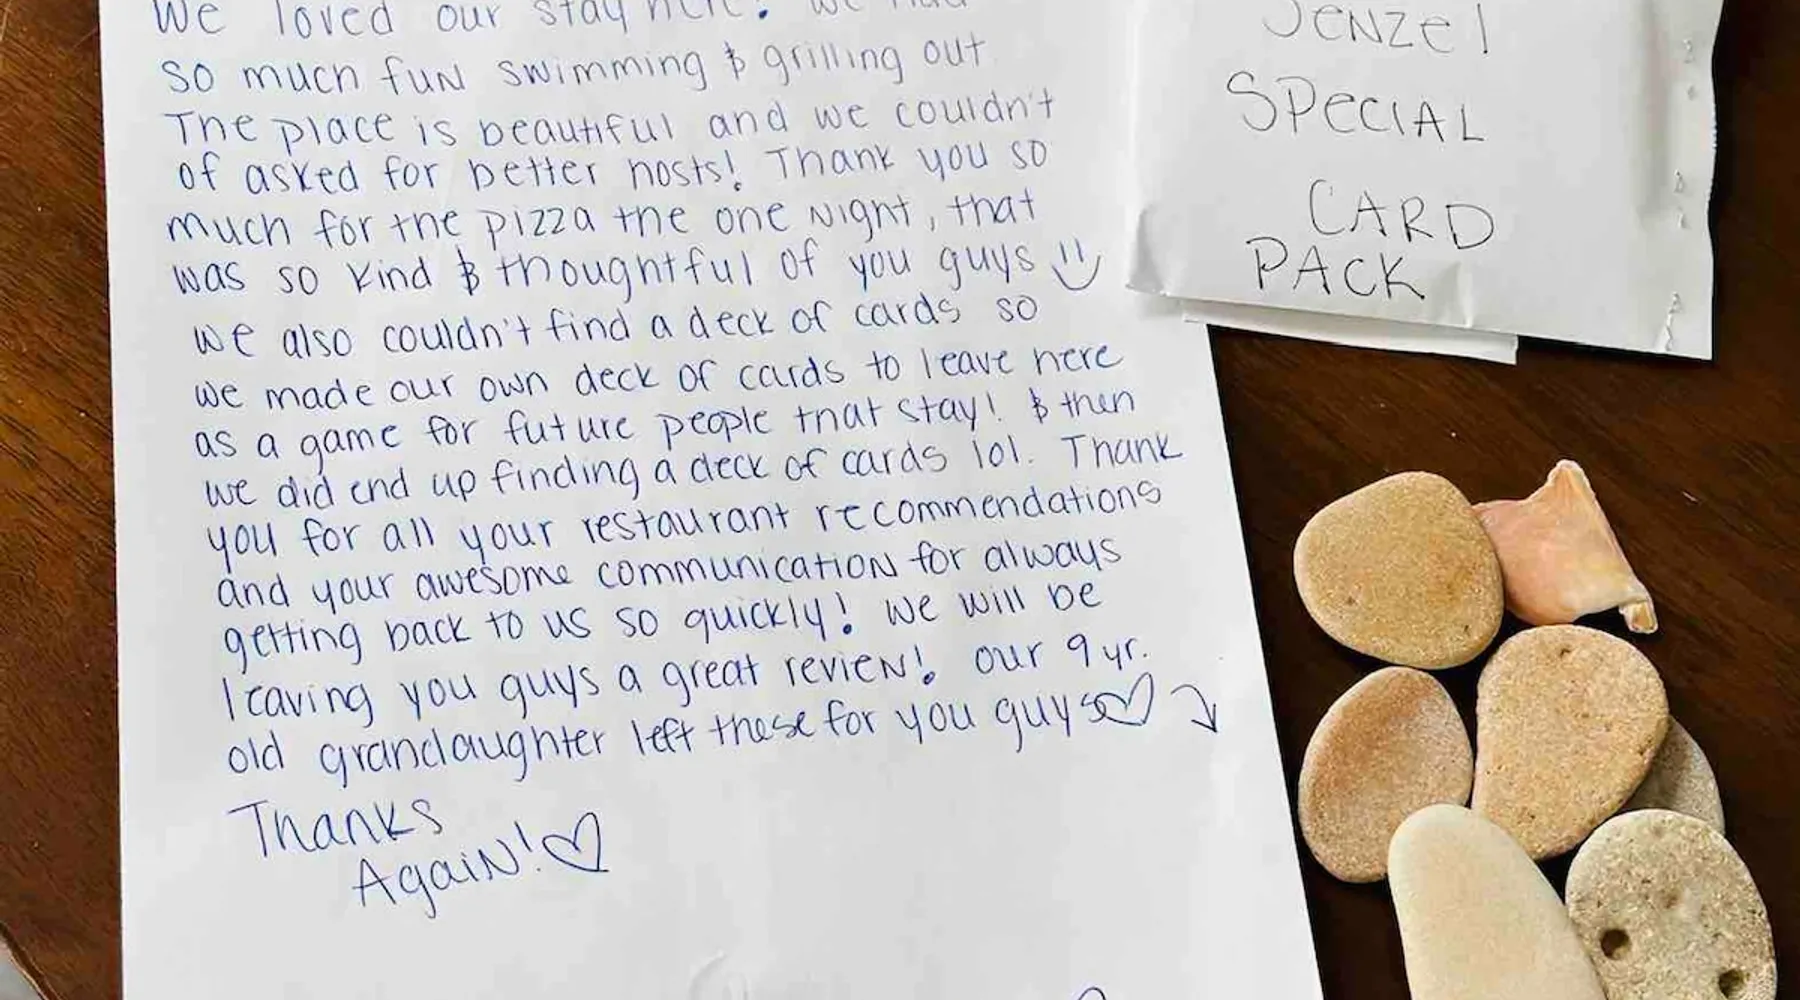 We loved our stay here! We had
so much fun swimming & grilling out
The place is beautiful and we couldn't
of asked for better hosts! Thank you so
much for the pizza the one night, that
was so kind & thoughtful of you guys
We also couldn't find a deck of cards so
we made our own deck of cards to leave here
as a game for future people that stay! & then
we did end up finding a deck of cards lol. Thank
you for all your restaurant recommendations
and your awesome communication for always
getting back to us so quickly! We will be
leaving you guys a great review! Our 9 yr.
old grandaughter left these for you guys
Thanks
Again!
Jenzel
Special
Card
Pack